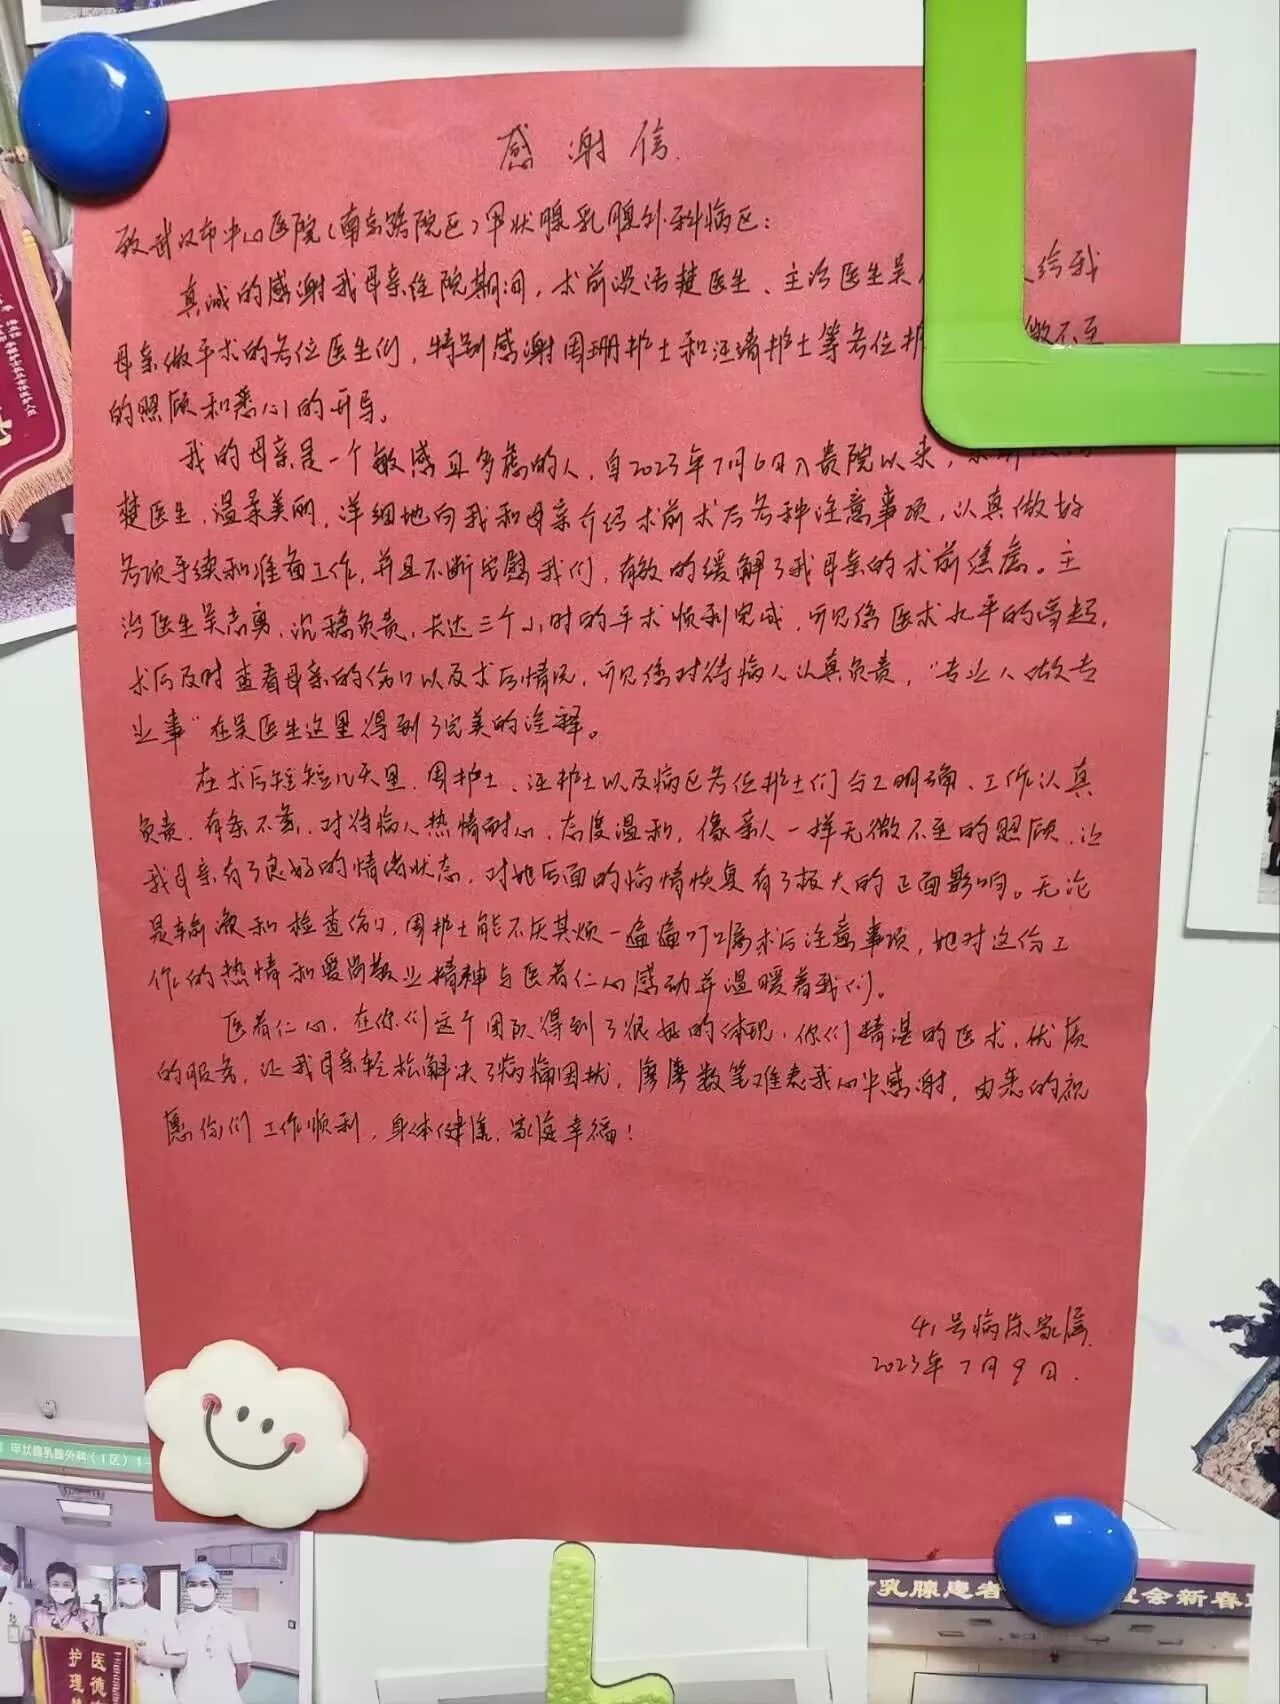 感谢信
致武汉市中心医院(南京路院区)甲状腺乳腺外科病区:
真诚的感谢我母亲住院期间,术前谈话楚医生、主治医生吴 给我
母亲做手术的各位医生们,特别感谢周珊护士和汪靖护士等各位护 微不至
的照顾和悉心的开导。
我的母亲是一个敏感且多虑的人,自2023年7月6日入贵院以来,
楚医生,温柔美丽,详细地向我和母亲介绍术前术后各种注意事项,认真做好
各项手续和准备工作,并且不断安慰我们,有效的缓解了我母亲的术前焦虑。主
治医生吴志勇,沉稳负责,长达三个小时的手术顺利完成,可见您医术水平的高超,
术后及时查看母亲的伤口以及术后情况,可见您对待病人认真负责,“专业人做专
业事”在吴医生这里得到了完美的诠释。
在术后短短几天里,周护士、汪护士以及病区各位护士们分工明确、工作认真
负责,有条不紊,对待病人热情耐心,态度温和,像亲人一样无微不至的照顾,让
我母亲有了良好的情绪状态,对她后面的病情恢复有了极大的正面影响。无论
是输液和检查伤口,周护士能不厌其烦一遍遍叮嘱术后注意事项,她对这份工
作的热情和爱岗敬业精神与医者仁心感动并温暖着我们。
医者仁心,在你们这个团队得到了很好的体现,你们精湛的医术,优质
的服务,让我母亲轻松解决了病痛困扰,寥寥数笔难表我心中感谢,由衷的祝
愿你们工作顺利,身体健康,家庭幸福!
41号病床家属
2023年7月9日.
甲状腺乳腺外科(1区)1-
医德
护理
乳腺患者
会新春